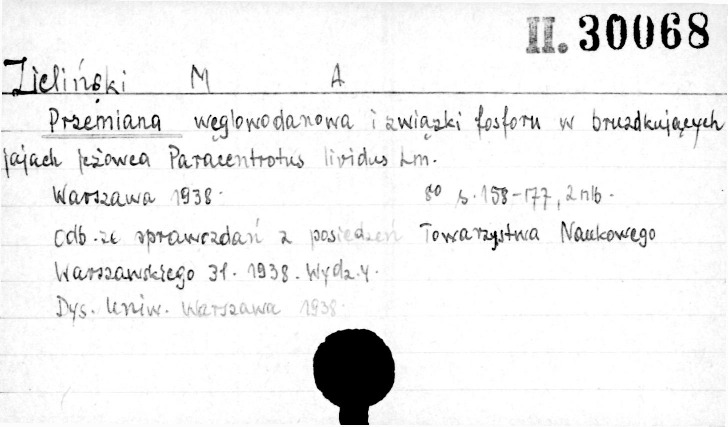 II. 30068
Zieliński M A
Przemiana węglowodanowa i związki fosforu w bruzdkujących
jajach jeżowca Paracentrotus lividus Lm.
Warszawa 1938. 8° s. 158-177, 2 nlb.
Odb. ze sprawozdań z posiedzeń Towarzystwa Naukowego
Warszawskiego 31. 1938. Wydz. 4.
Dys. Uniw. Warszawa 1938.